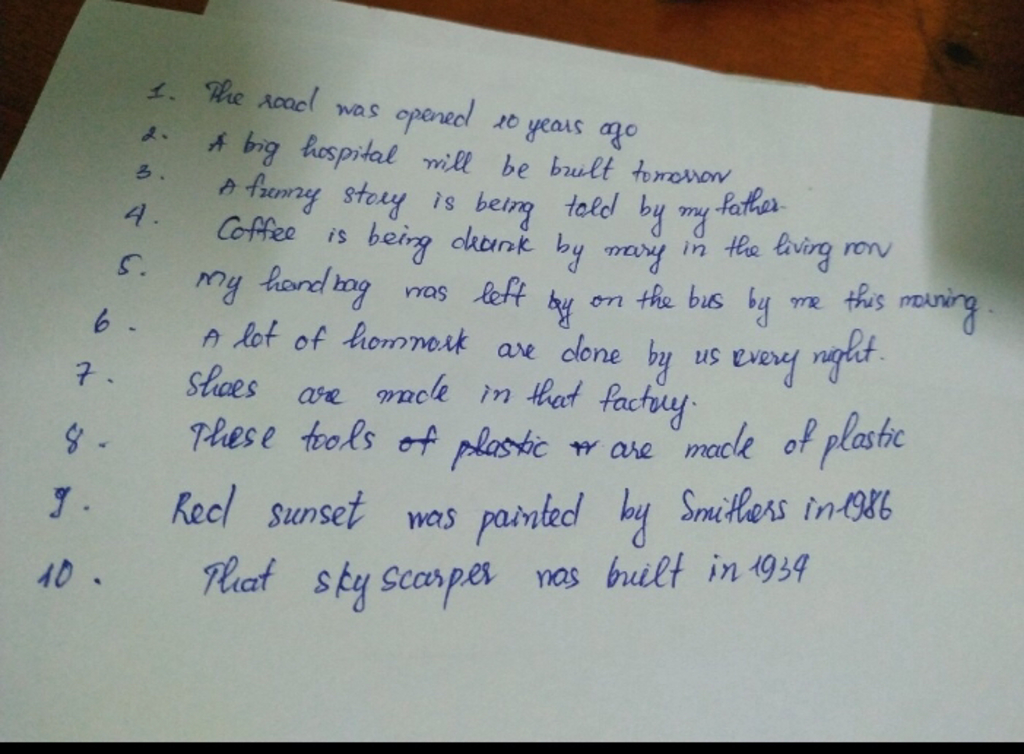 1. The road was opened 10 years ago
2. A big hospital will be built tomorrow
3. A funny story is being told by my father.
4. Coffee is being drunk by mary in the living row
5. My handbag was left by on the bus by me this morning.
6. A lot of homework are done by us every night.
7. Shoes are made in that factory.
8. These tools of plastic are made of plastic
9. Red sunset was painted by Smithers in 1986
10. That sky scarper was built in 1934